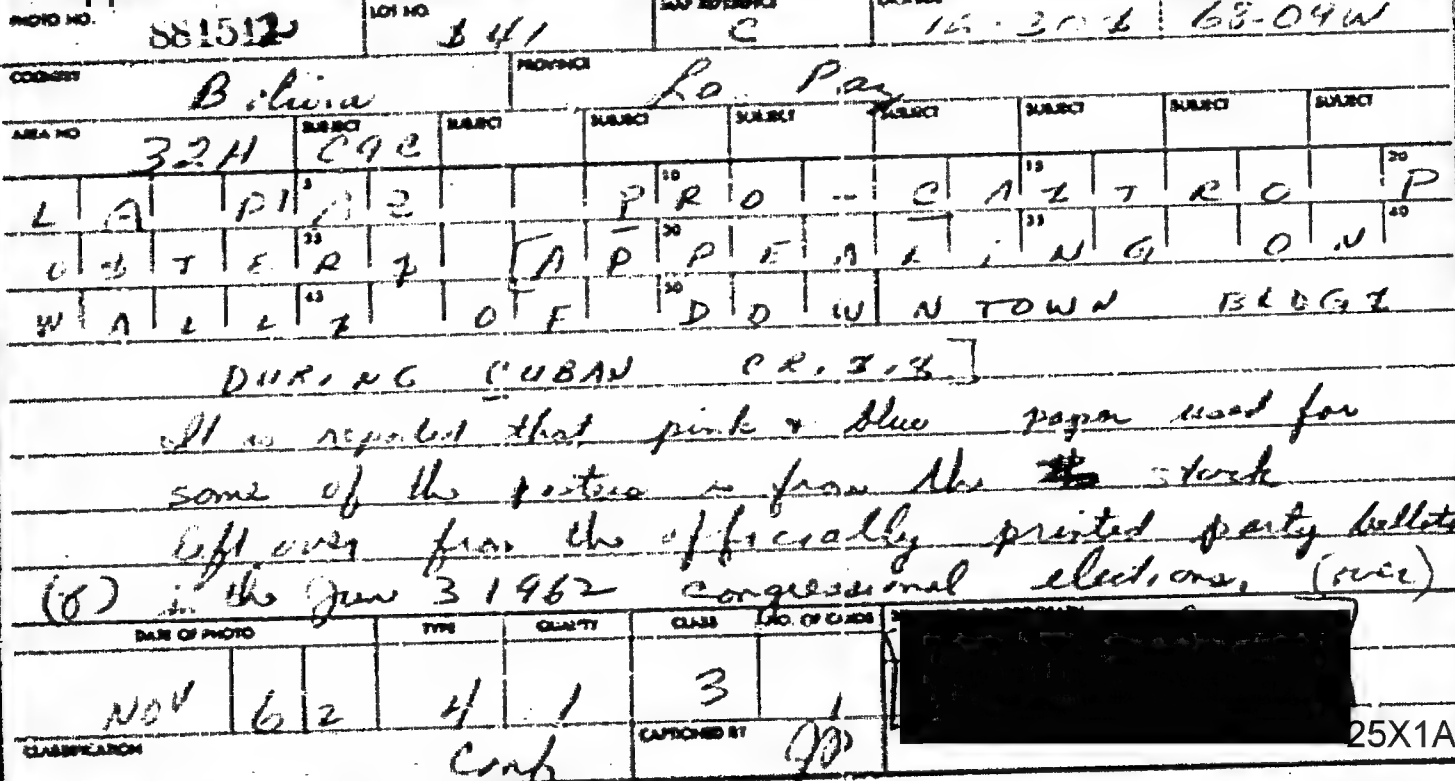 PHOTO NO. LOT NO. MAP REFERENCE
881512 $41 C 16-30S 68-09W
COUNTRY PROVINCE
Bolivia La Paz
AREA NO SUBJECT SUBJECT SUBJECT SUBJECT SUBJECT SUBJECT SUBJECT SUBJECT
32H C9C
LA PAZ PRO-CASTRO P
OSTERS [APPEALING ON
WALLS OF DOWNTOWN BLDGS
DURING CUBAN CRISIS]
It is reported that pink & blue paper used for
some of the posters is from the stock
left over from the officially printed party ballots
(8) in the June 3 1962 congressional elections. (over)
DATE OF PHOTO TYPE QUALITY CLASS NO. OF CARDS
NOV 62 4 1 3 1
CLASSIFICATION CAPTIONED BY
Conf
25X1A